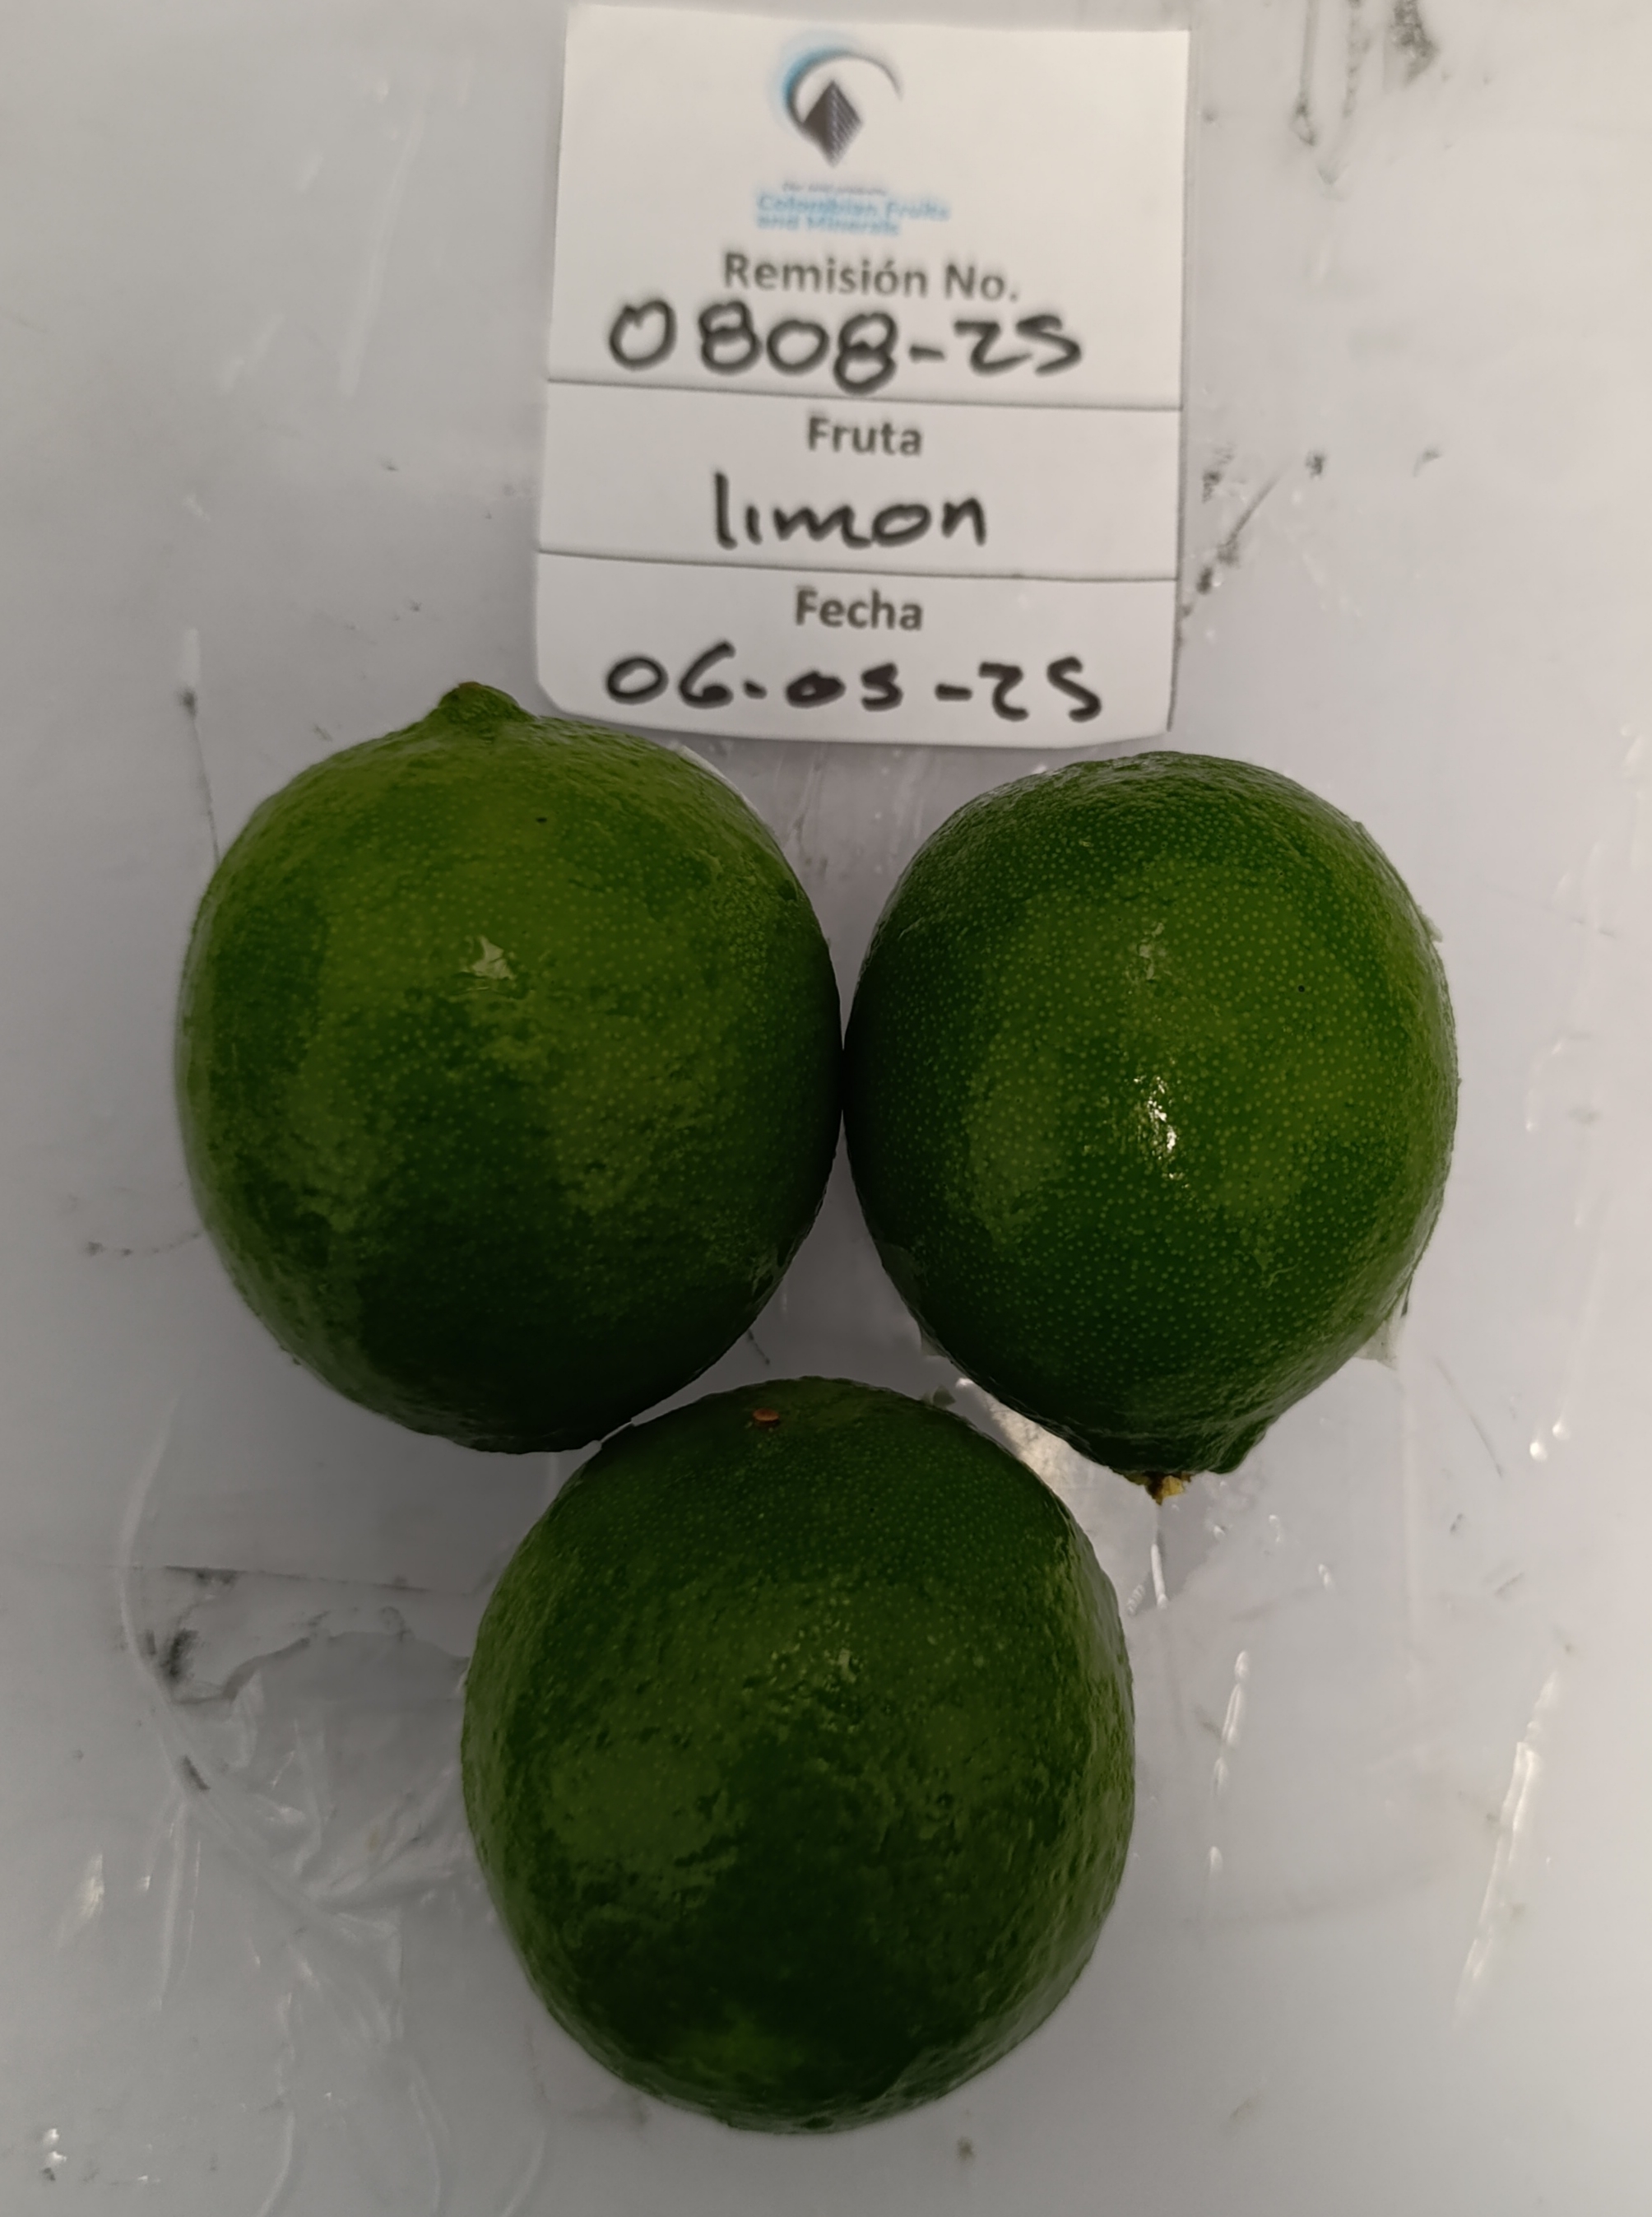 Colombian Fruits
and Minerals
Remisión No.
0808-25
Fruta
limon
Fecha
06-05-25